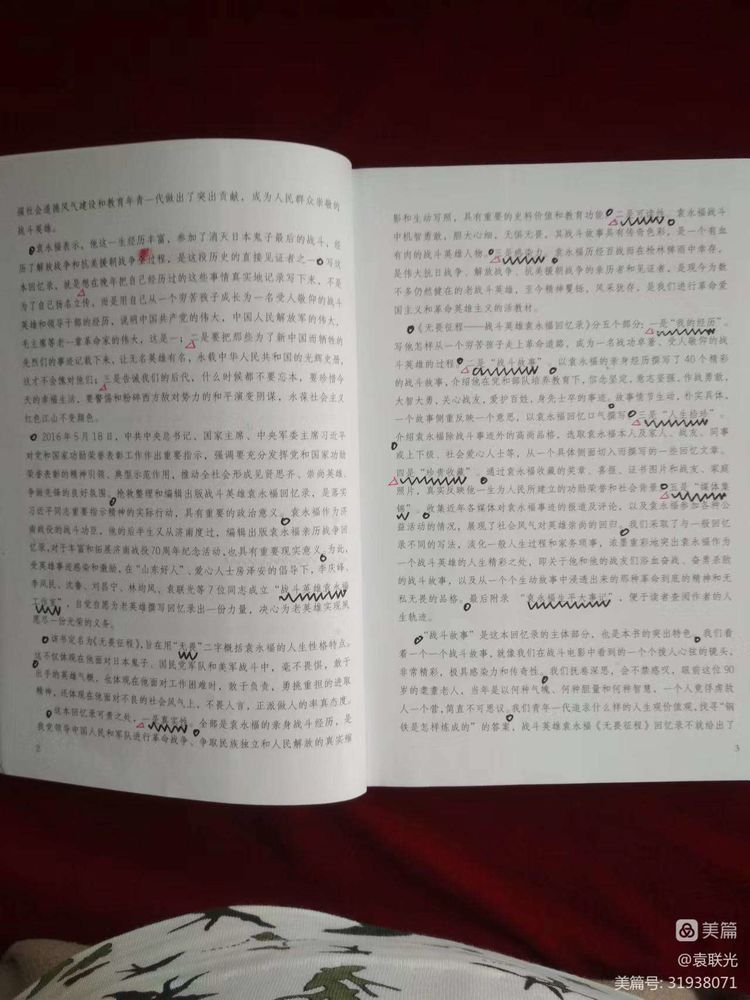 强社会道德风气建设和教育年青一代做出了突出贡献，成为人民群众崇敬的
战斗英雄。
袁永福表示，他这一生经历丰富，参加了消灭日本鬼子最后的战斗、经
历了解放战争和抗美援朝战争全过程，是这段历史的直接见证者之一。写这
本回忆录，就是想在晚年把自己经历过的这些事情真实地记录写下来，不是
为了自己扬名立传，而是用自己从一个穷苦孩子成长为一名受人敬仰的战斗
英雄和领导干部的经历，说明中国共产党的伟大，中国人民解放军的伟大，
毛主席等老一辈革命家的伟大，这是一；二是要把那些为了新中国而牺牲的
先烈们的事迹记载下来，让无名英雄有名，永载中华人民共和国的光辉史册，
这才不会愧对他们；三是告诫我们的后代，什么时候都不要忘本，要珍惜今
天的幸福生活，要警惕和粉碎西方敌对势力的和平演变阴谋，永葆社会主义
红色江山不变颜色。
2016年5月18日，中共中央总书记、国家主席、中央军委主席习近平
对党和国家功勋荣誉表彰工作作出重要指示，强调要充分发挥党和国家功勋
荣誉表彰的精神引领、典型示范作用，推动全社会形成见贤思齐、崇尚英雄、
争做先锋的良好氛围。抢救整理和编辑出版战斗英雄袁永福回忆录，是落实
习近平同志重要指示精神的实际行动，具有重要的政治意义。袁永福作为济
南战役的战斗功臣，他的后半生又从济南度过，编辑出版袁永福亲历战争回
忆录，对于丰富和拓展济南战役70周年纪念活动，也具有重要现实意义。为此，
受英雄事迹感染和激励，在“山东好人”、爱心人士房泽安的倡导下，李庆峰、
李凤民、沈鲁、刘昌宁、林均凤、袁联光等7位同志成立“战斗英雄袁永福
工作室”，自觉自愿为老英雄撰写回忆录出一份力量，决心为老英雄实现夙
愿尽一份光荣的义务。
该书定名为《无畏征程》，旨在用“无畏”二字概括袁永福的人生性格特点。
这不仅体现在他面对日本鬼子、国民党军队和美军战斗中，毫不畏惧，敢于
出手的英雄气概，也体现在他面对工作困难时，敢于负责，勇挑重担的进取
精神，还体现在他面对不良的社会风气上，不畏人言，正派做人的率真态度。
这本回忆录可贵之处，一是真实性。全部是袁永福的亲身战斗经历，是
我党领导中国人民和军队进行革命战争、争取民族独立和人民解放的真实缩
2
影和生动写照，具有重要的史料价值和教育功能。二是可读性。袁永福战斗
中机智勇敢，胆大心细，无惧无畏，其战斗故事具有传奇色彩，是一个有血
有肉的战斗英雄人物。三是感染力。袁永福历经百战而在枪林弹雨中幸存，
是伟大抗日战争、解放战争、抗美援朝战争的亲历者和见证者，是现今为数
不多仍然健在的老战斗英雄，至今精神矍铄，风采犹存，是我们进行革命爱
国主义和革命英雄主义的活教材。
《无畏征程——战斗英雄袁永福回忆录》分五个部分：一是“我的经历”。
写他怎样从一个穷苦孩子走上革命道路，成为一名战功卓著、受人敬仰的战
斗英雄的过程。二是“战斗故事”。以袁永福的亲身经历撰写了40个精彩
的战斗故事，介绍他在党和部队培养教育下，信念坚定，意志坚强，作战勇敢，
大智大勇，关心战友，爱护百姓，身先士卒的事迹。故事情节生动，朴实具体，
一个故事侧重反映一个意思，以袁永福回忆口气撰写。三是“人生拾珍”。
介绍袁永福除战斗事迹外的高尚品格，选取袁永福本人及家人、战友、同事
或上下级、社会爱心人士等，从一个具体侧面切入而撰写的一些回忆文章。
四是“珍贵收藏”。通过袁永福收藏的奖章、喜报、证书图片和战友、家庭
照片，真实反映他一生为人民所建立的功勋荣誉和社会背景。五是“媒体集
锦”。收集近年各媒体对袁永福事迹的报道及评论，以及袁永福参加各种公
益活动的情况，展现了社会风气对英雄崇尚的回归。我们采取了与一般回忆
录不同的写法，淡化一般人生过程和家务琐事，浓墨重彩地突出袁永福作为
一个战斗英雄的人生精彩之处，即关于他和他的战友们浴血奋战、奋勇杀敌
的战斗故事，以及从一个个生动故事中浸透出来的那种革命到底的精神和无
私无畏的品格。最后附录“袁永福生平大事记”，便于读者查阅作者的人
生轨迹。
“战斗故事”是本回忆录的主体部分，也是本书的突出特色。我们看
着一个一个战斗故事，就像我们在战斗电影中看到的一个个拨人心弦的镜头，
非常精彩，极具感染力和传奇性。我们抚卷深思，会不禁感叹，眼前这位90
岁的耄耋老人，当年是以何种气魄、何种胆量和何种智慧，一个人竟俘虏敌
人一个营，简直不可思议。我们青年一代追求什么样的人生观价值观，找寻“钢
铁是怎样炼成的”的答案，战斗英雄袁永福《无畏征程》回忆录不就给出了
3
美篇
@袁联光
美篇号: 31938071